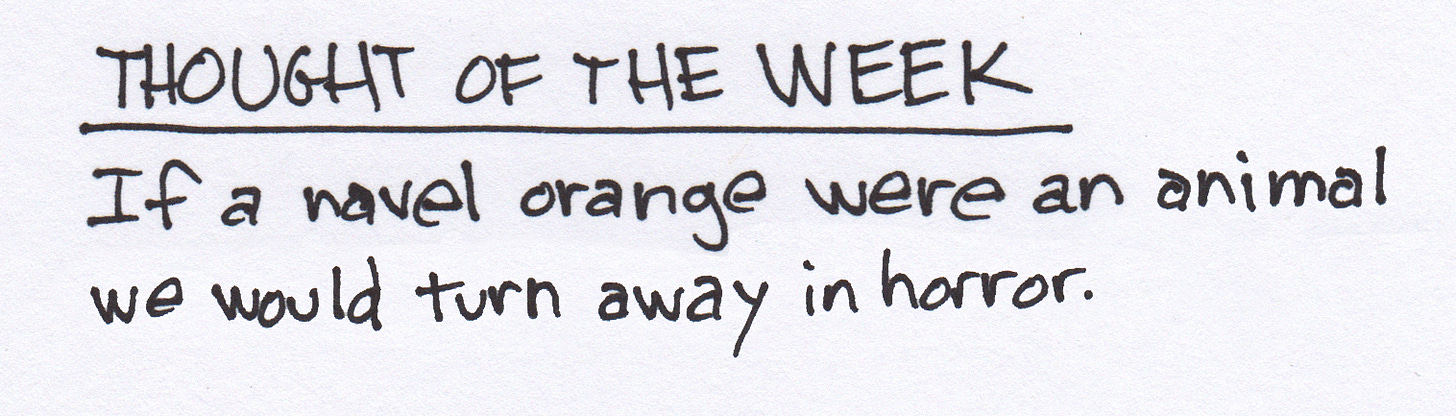 THOUGHT OF THE WEEK
If a navel orange were an animal
we would turn away in horror.